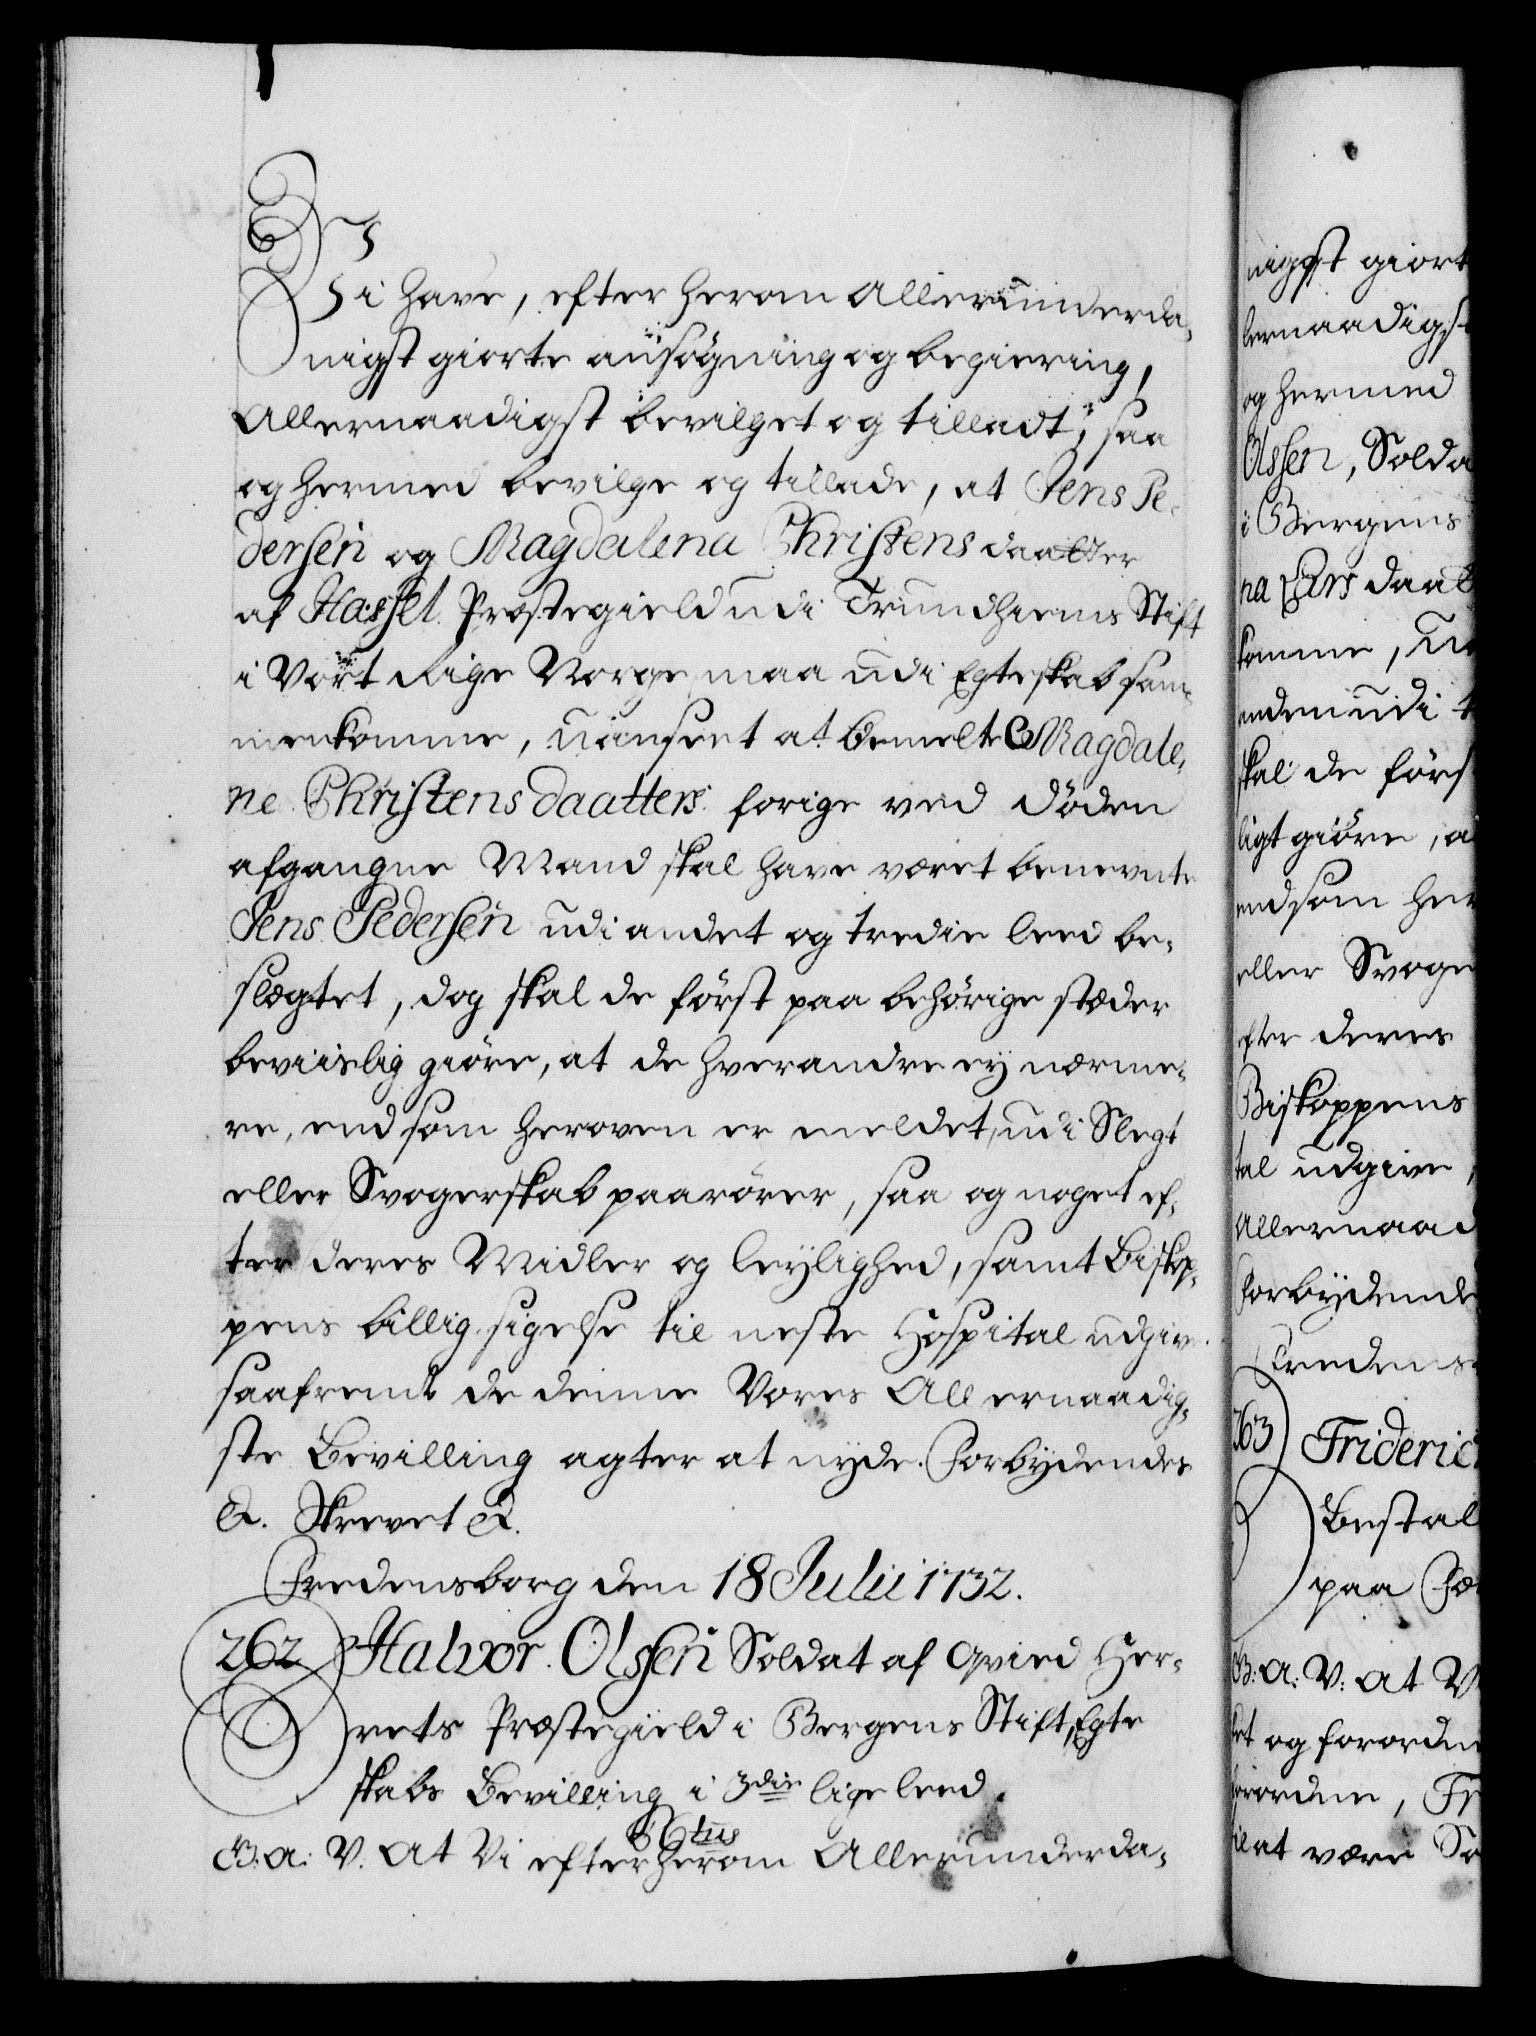 Vi have, efter herom Allerunderda-
nigst giorte ansögning og begiering,
Allernaadigst bevilget og tilladt, saa
og hermed bevilge og tillade, at Jens Pe-
dersen og Magdalena Christens daatter
af Hassel Præstegield udi Trundhiems Stift
i Vort Rige Norge, maa udi Egteskab sam-
menkomme, uanseet at bemelte Magdale-
ne Christens daatters forige ved döden
afgangne Mand skal have været benevnte
Jens Pedersen udi andet og tredie leed be-
slægtet, dog skal de först paa behörige stæder
beviislig giöre, at de hverandre ey nærme-
re, end som heroven er meldet, udi Slegt
eller Svogerskab paarörer, saa og noget ef-
ter deres Midler og leylighed, samt Biskop-
pens billig sigelse til neste Hospital udgive
saafremt de denne Vores Allernaadig-
ste Bevilling agter at nyde. Forbydendes
&. Skrevet &.
Fredensborg den 18 Julii 1732.
262 Halvor Olssen Soldat af Qvind Her-
rets Præstegield i Bergens Stift, Egte
skabs Bevilling i 3die lige leed.
G: A: V. At Vi efter herom Allerunderda-
nigst giort
lernaadigst
og hermed
Olssen, Solda
i Bergens
na Lars daat
komme, un
anden udi t
skal de förs
ligt giöre, a
end som her
eller Svoge
fter deres
Biskoppens
tal udgive,
Allernaad
Forbydende
Fredens
263 Frideric
Bestal
paa Fæ
G: A: V: At V
ket og forordne
forordne, Fr
til at være So